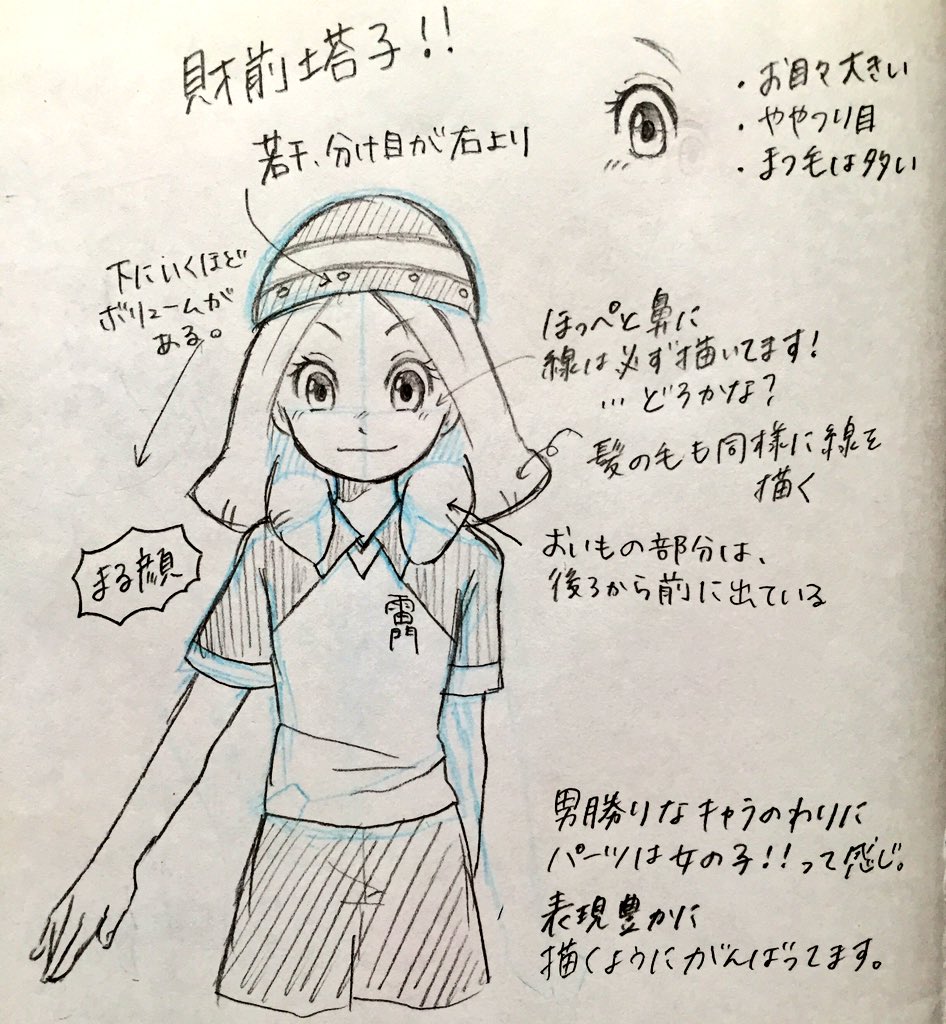 財前塔子!!
・お目々大きい
・ややつり目
・まつ毛は多い
若干、分け目が右より
下にいくほど
ボリュームが
ある。
ほっぺと鼻に
線は必ず描いてます!
…どろかな?
髪の毛も同様に線を
描く
まる顔
おいもの部分は、
後ろから前に出ている
雷門
男勝りなキャラのわりに
パーツは女の子!!って感じ。
表現豊かに
描くようにがんばってます。